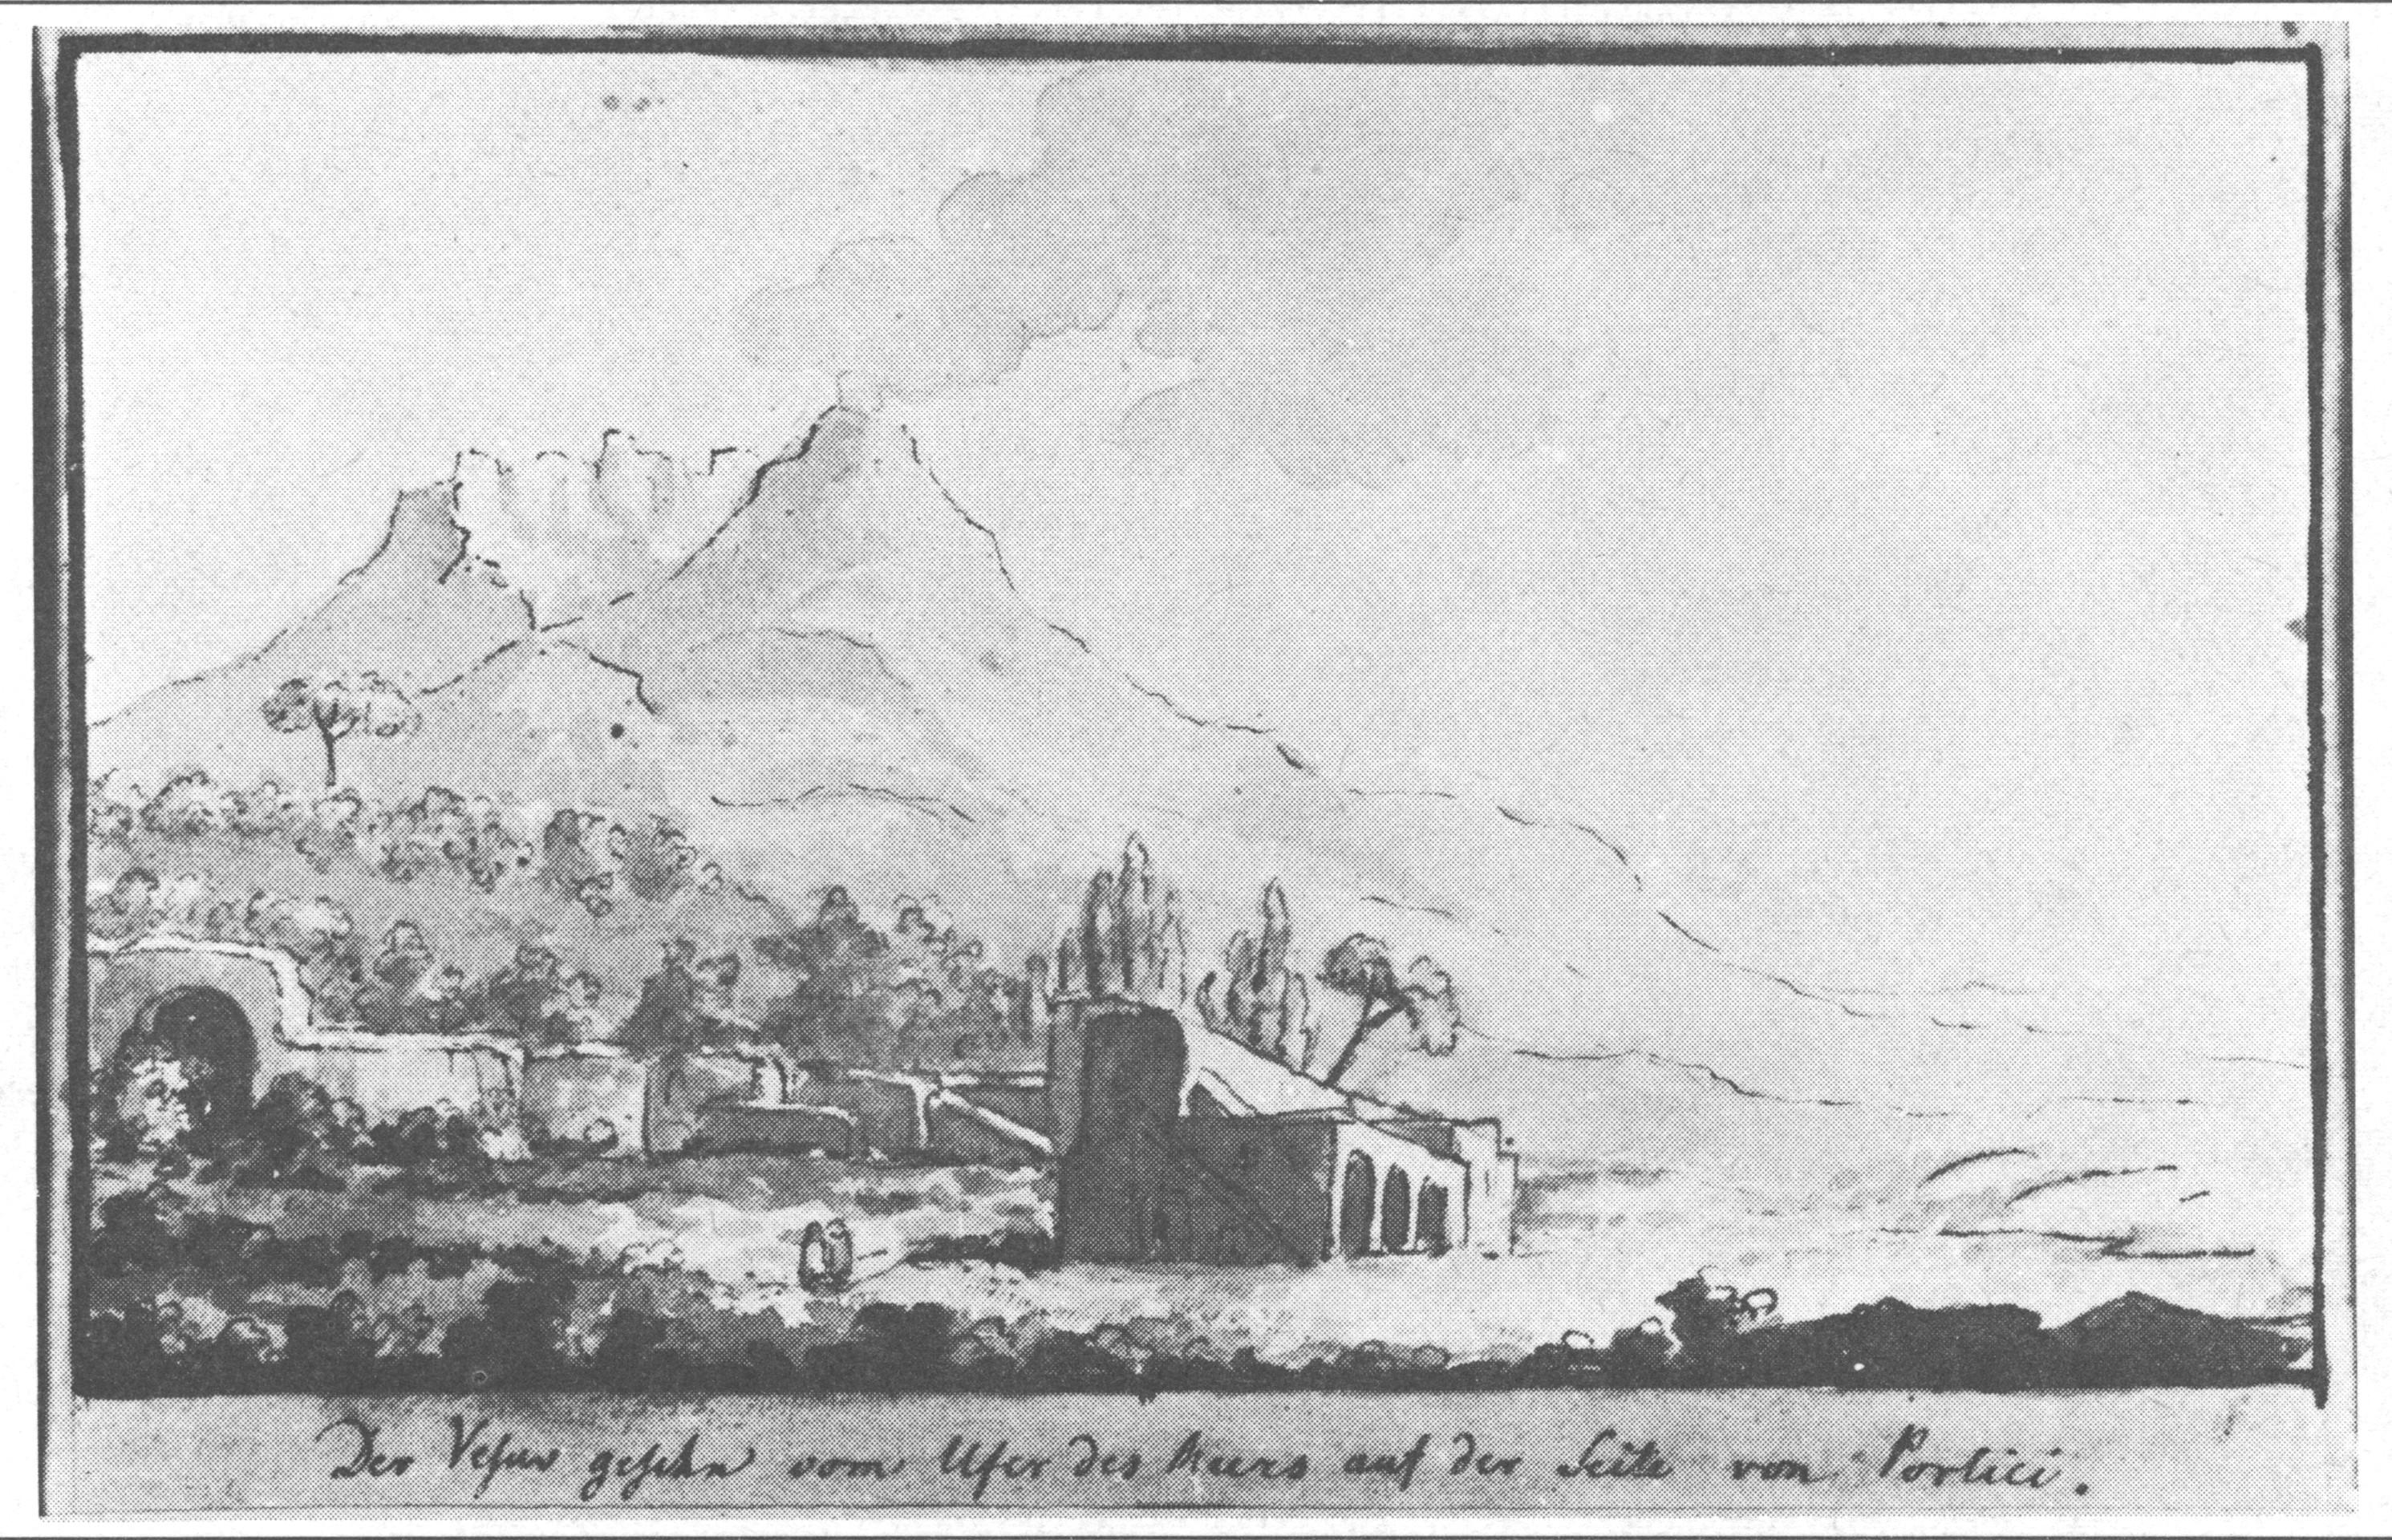 Der Vesuv gesehn vom Ufer des Meers auf der Seite von Portici.